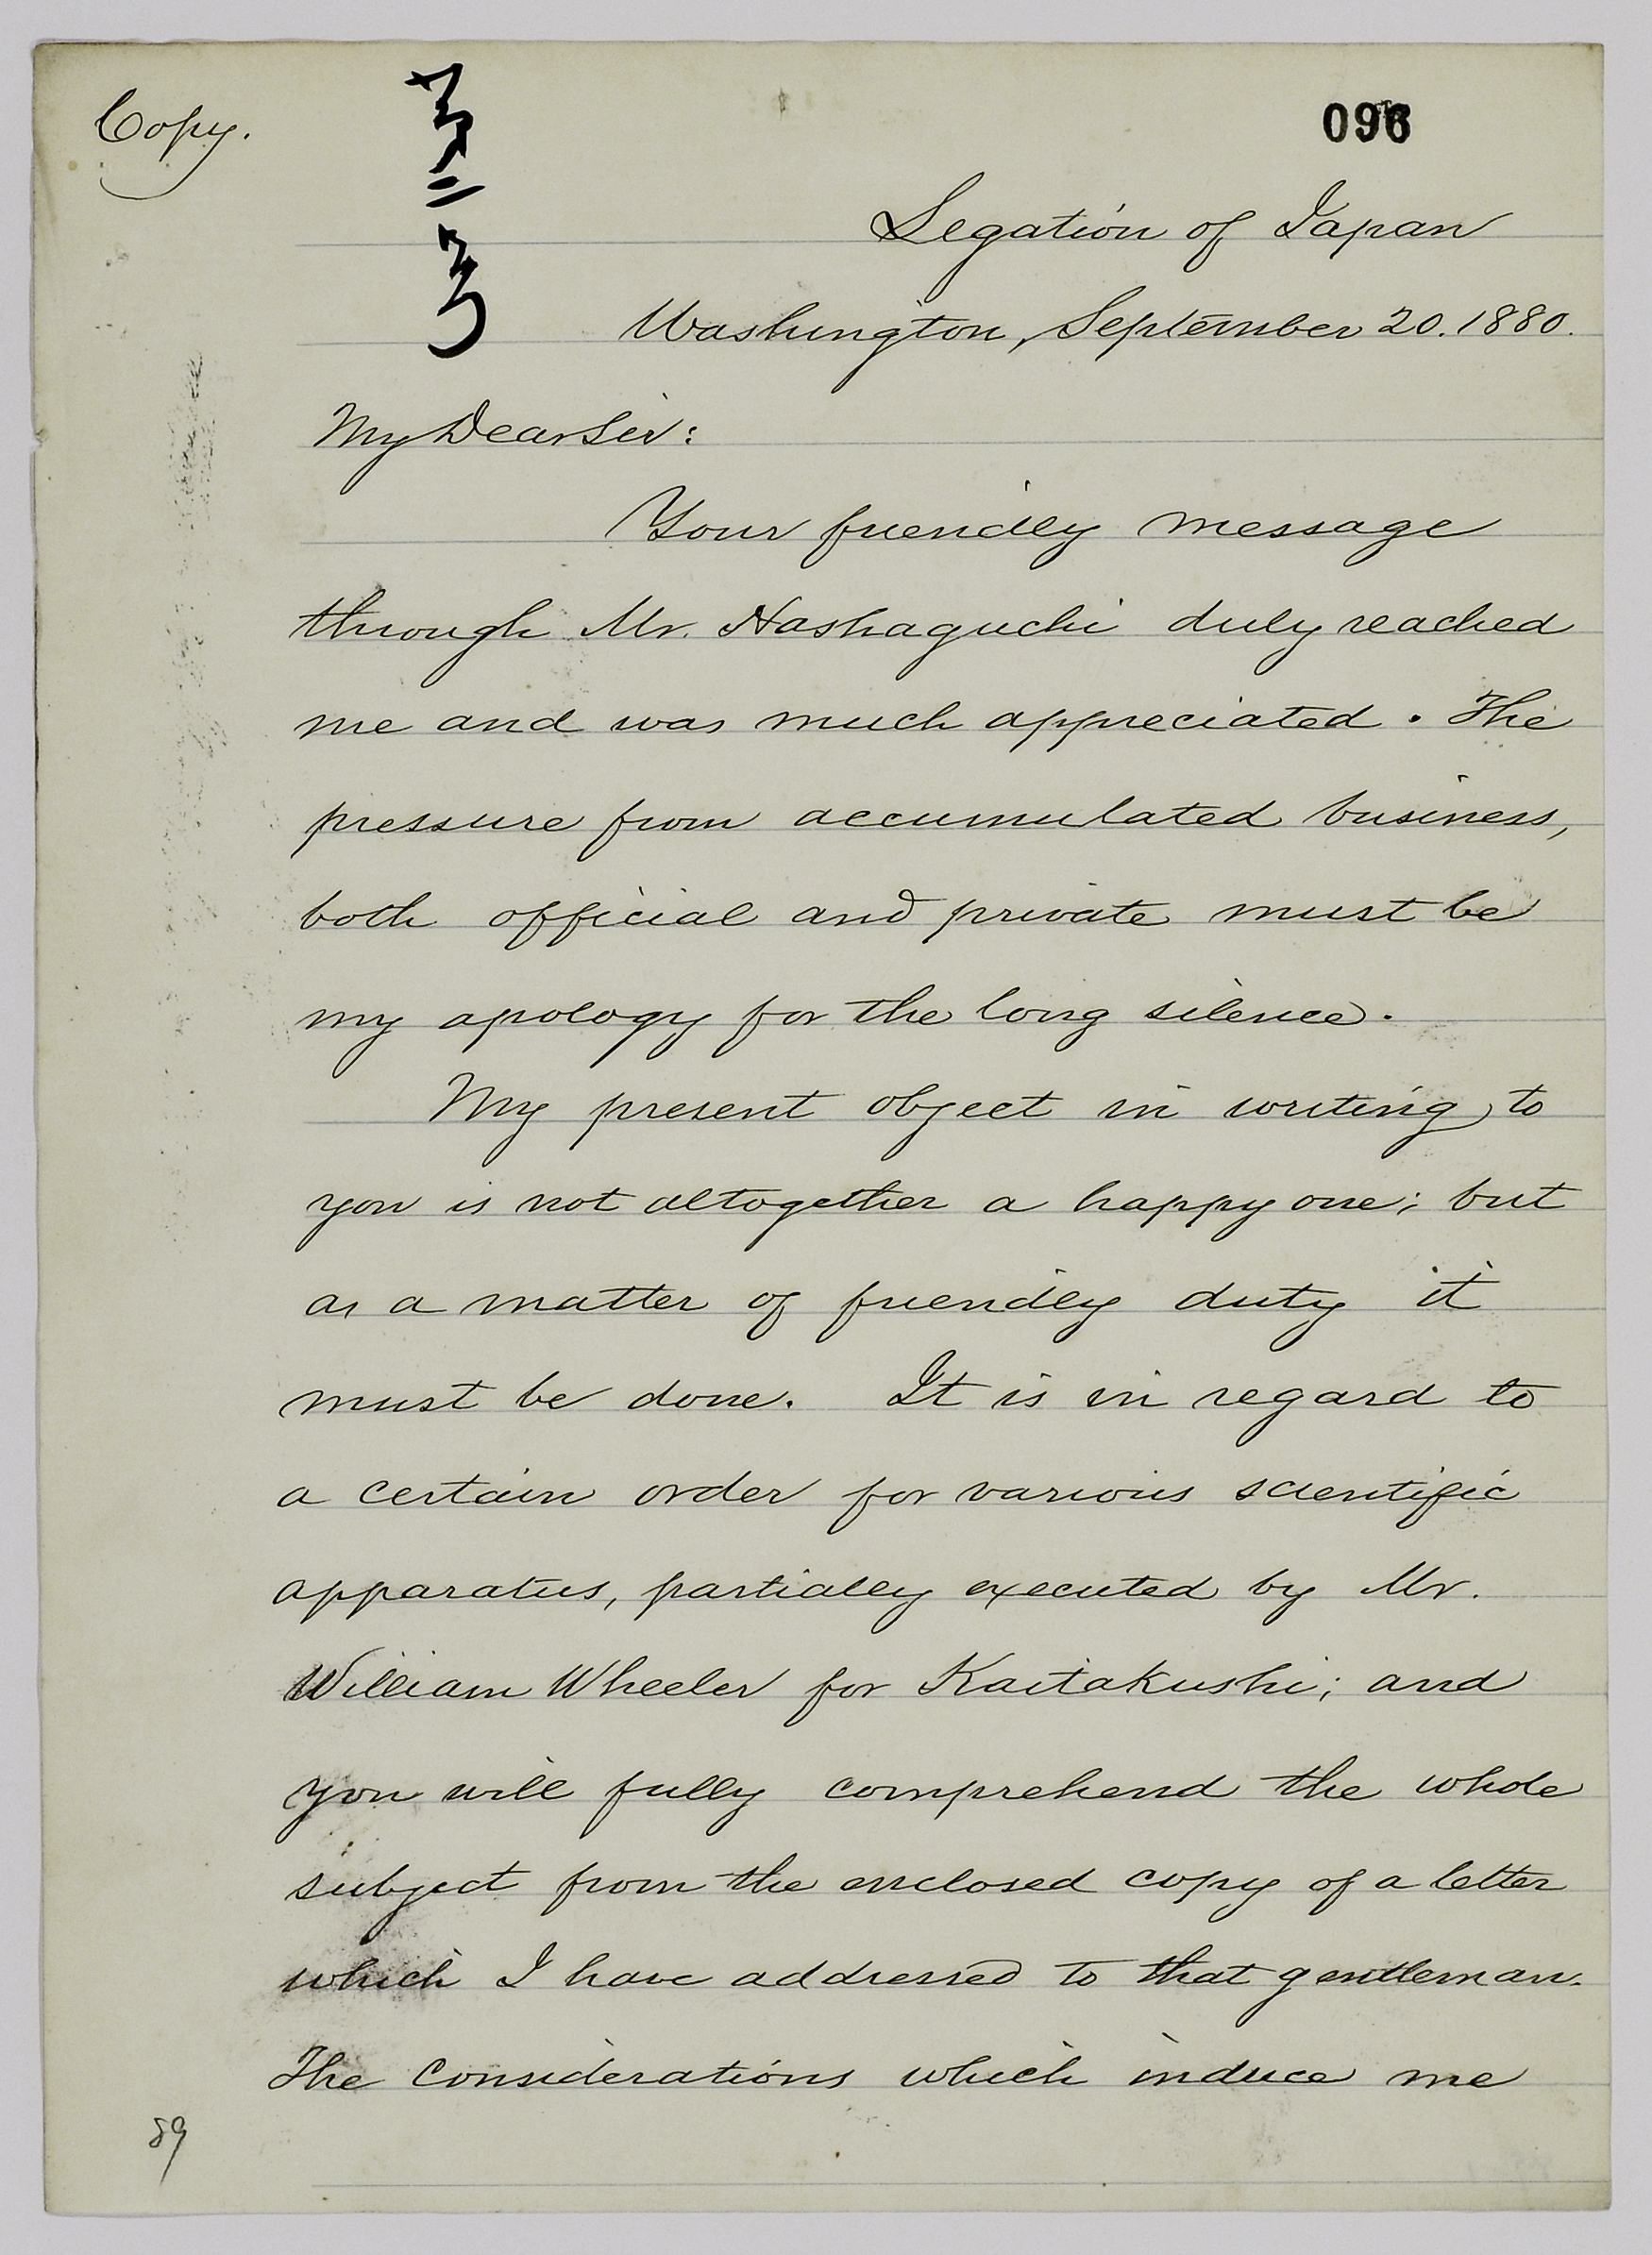 Copy.
096
Legation of Japan
Washington, September 20. 1880.
My Dear Sir:
Your friendly message
through Mr. Hashaguchi duly reached
me and was much appreciated. The
pressure from accumulated business,
both official and private must be
my apology for the long silence.
My present object in writing to
you is not altogether a happy one; but
as a matter of friendly duty it
must be done. It is in regard to
a certain order for various scientific
apparatus, partially executed by Mr.
William Wheeler for Kaitakushi; and
you will fully comprehend the whole
subject from the enclosed copy of a letter
which I have addressed to that gentleman.
The considerations which induce me
89